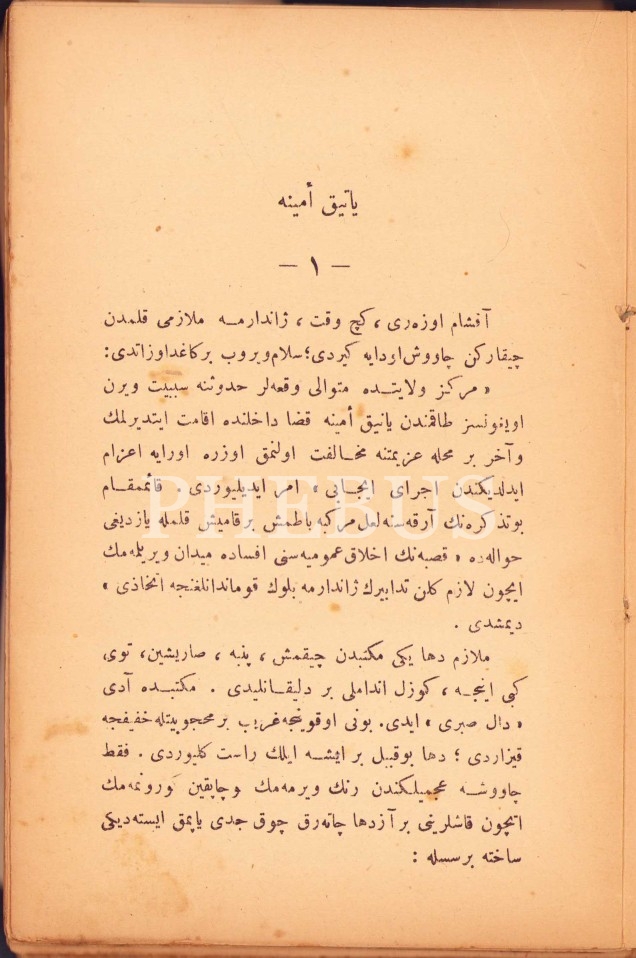 یاتیق أمینه
— ۱ —
آقشام اوزەری ، کچ وقت ، ژاندارمـه ملازمی قلمدن
چیقارکن چاووش اودایه کیردی؛ سلام ویروب برکاغد اوزاتدی:
« مرکز ولایتـده متوالی وقعەلر حدوثنه سببیت ویرن
اویغونسز طاقمندن یاتیق أمینه قضا داخلنده اقامت ایتدیرلمك
وآخر بر محله عزیمتنه مخـالفت اولنمق اوزره اورایه اعزام
ایدلدیکندن اجرای ایجـابی » امر ایدیلیوردی . قائممقـام
بوتذکرەنك آرقەسنه لعل مرکبه باطمش برقامیش قلمله یازدیغی
حوالەده « قصبەنك اخلاق عمومیەسنی افساده میدان ویریلەمك
ایچون لازم کلن تدابیرك ژاندارمه بلوك قومانداнلغنجه اتخاذی »
دیمشدی .
ملازم دها یکی مکتبدن چیقمش ، پنبه ، صاریشین، توی
کبی اینجـه ، کوزل اندامـلی بر دلیقـانلیدی . مکتبـده آدی
« دال صبری » ایدی. بونی اوقوینجه غریب بر محجوبیتله خفیفجه
قیزاردی ؛ دها بوقبیل بر ایشـه ایلك راست کلیوردی . فقط
چاووشـه عجمیلکندن رنك ویرمەمك وچاپقین کورونمەمك
ایچون قاشلرینی بر آز دها چاتەرق چوق جدی یاپمق ایستەدیکی
ساخته برسسله :
PHEBUS